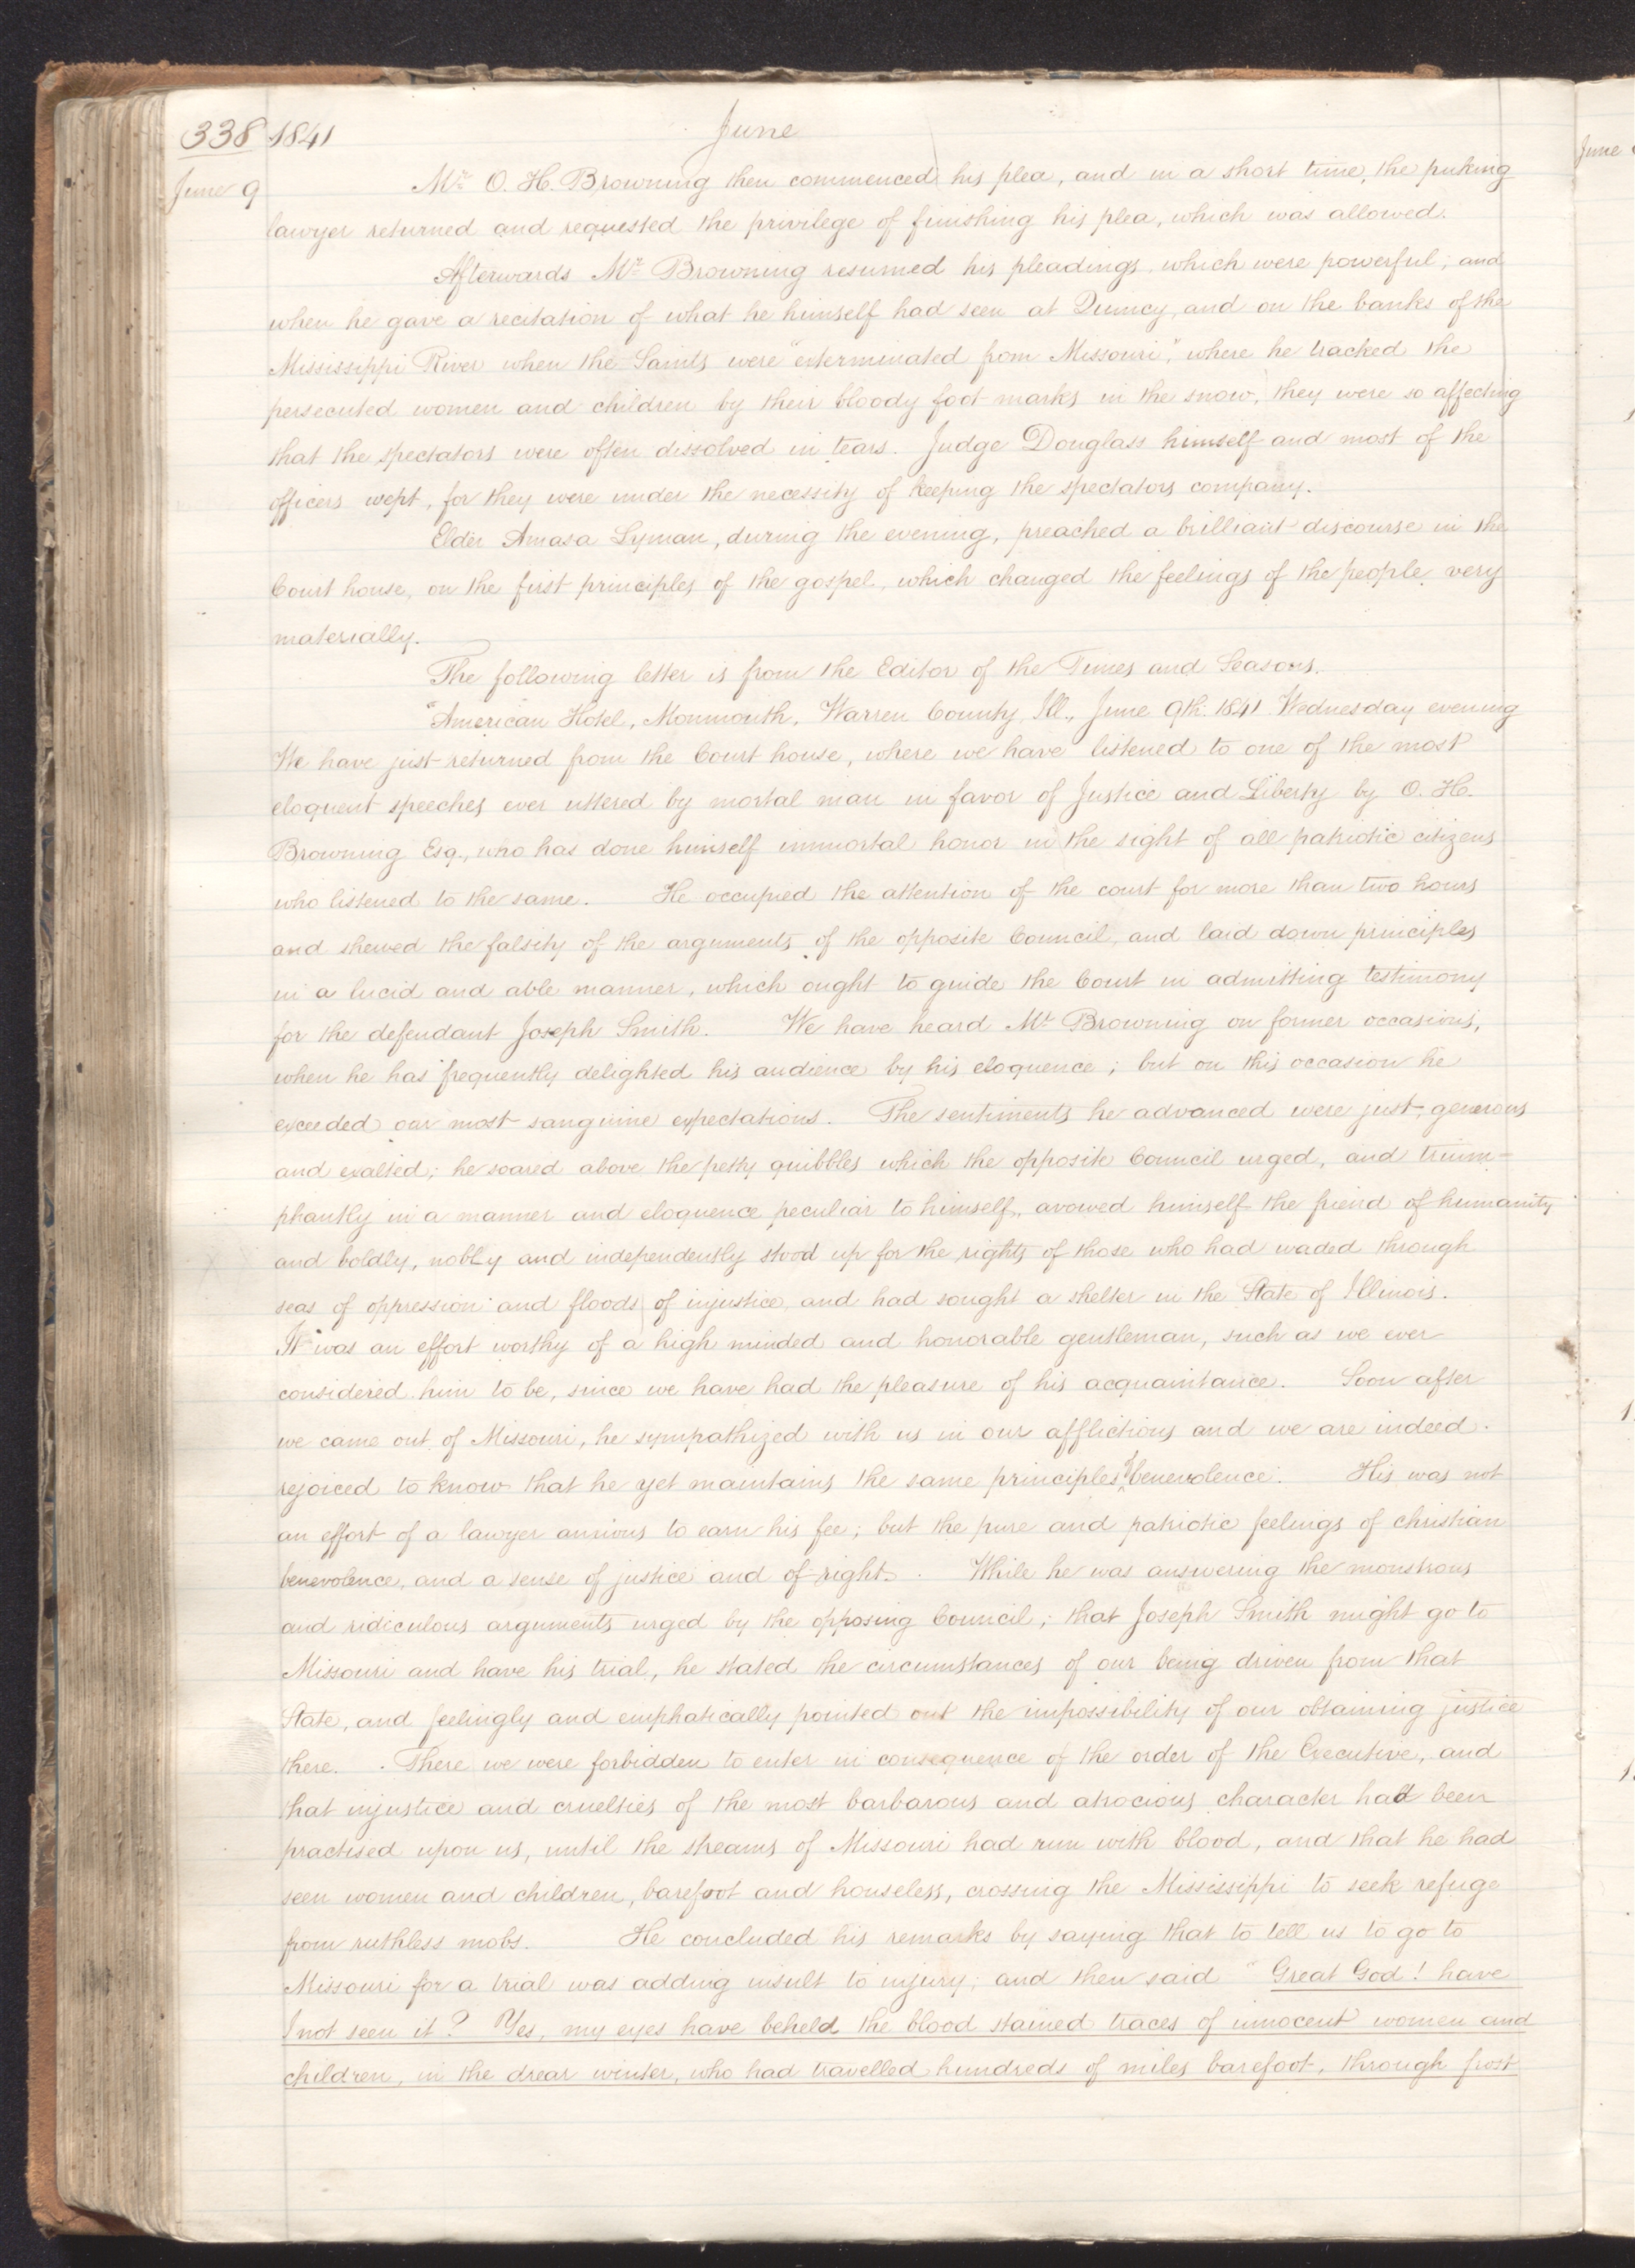 338 1841 June
June 9 Mr. O. H. Browning then commenced his plea, and in a short time, the puking
lawyer returned and requested the privilege of finishing his plea, which was allowed.
Afterwards Mr. Browning resumed his pleadings, which were powerful; and
when he gave a recitation of what he himself had seen at Quincy, and on the banks of the
Mississippi River when the Saints were "exterminated from Missouri," where he tracked the
persecuted women and children by their bloody foot marks in the snow, they were so affecting
that the spectators were often dissolved in tears. Judge Douglass himself and most of the
officers wept, for they were under the necessity of keeping the spectators company.
Elder Amasa Lyman, during the evening, preached a brilliant discourse in the
Court house, on the first principles of the gospel, which changed the feelings of the people very
materially.
The following letter is from the Editor of the Times and Seasons.
"American Hotel, Monmouth, Warren County, Ill., June 9th. 1841 Wednesday evening
We have just returned from the Court house, where we have listened to one of the most
eloquent speeches ever uttered by mortal man in favor of Justice and Liberty by O. H.
Browning Esq., who has done himself immortal honor in the sight of all patriotic citizens
who listened to the same. He occupied the attention of the court for more than two hours
and shewed the falsity of the arguments of the opposite Council, and laid down principles
in a lucid and able manner, which ought to guide the Court in admitting testimony
for the defendant Joseph Smith. We have heard Mr Browning on former occasions,
when he has frequently delighted his audience by his eloquence; but on this occasion he
exceeded our most sanguine expectations. The sentiments he advanced were just, generous
and exalted; he soared above the petty quibbles which the opposite Council urged, and trium=
phantly in a manner and eloquence peculiar to himself, avowed himself the friend of humanity
and boldly, nobly and independently stood up for the rights of those who had waded through
seas of oppression and floods of injustice, and had sought a shelter in the State of Illinois.
It was an effort worthy of a high minded and honorable gentleman, such as we ever
considered him to be, since we have had the pleasure of his acquaintance. Soon after
we came out of Missouri, he sympathized with us in our afflictions and we are indeed
rejoiced to know that he yet maintains the same principles of benevolence. His was not
an effort of a lawyer anxious to earn his fee; but the pure and patriotic feelings of christian
benevolence, and a sense of justice and of right. While he was answering the monstrous
and ridiculous arguments urged by the opposing Council; that Joseph Smith might go to
Missouri and have his trial, he stated the circumstances of our being driven from that
State, and feelingly and emphatically pointed out the impossibility of our obtaining justice
there. There we were forbidden to enter in consequence of the order of the Executive, and
that injustice and cruelties of the most barbarous and atrocious character had been
practised upon us, until the streams of Missouri had run with blood, and that he had
seen women and children, barefoot and houseless, crossing the Mississippi to seek refuge
from ruthless mobs. He concluded his remarks by saying that to tell us to go to
Missouri for a trial was adding insult to injury; and then said "Great God! have
I not seen it? Yes, my eyes have beheld the blood stained traces of innocent women and
children, in the drear winter, who had travelled hundreds of miles barefoot, through frost
June